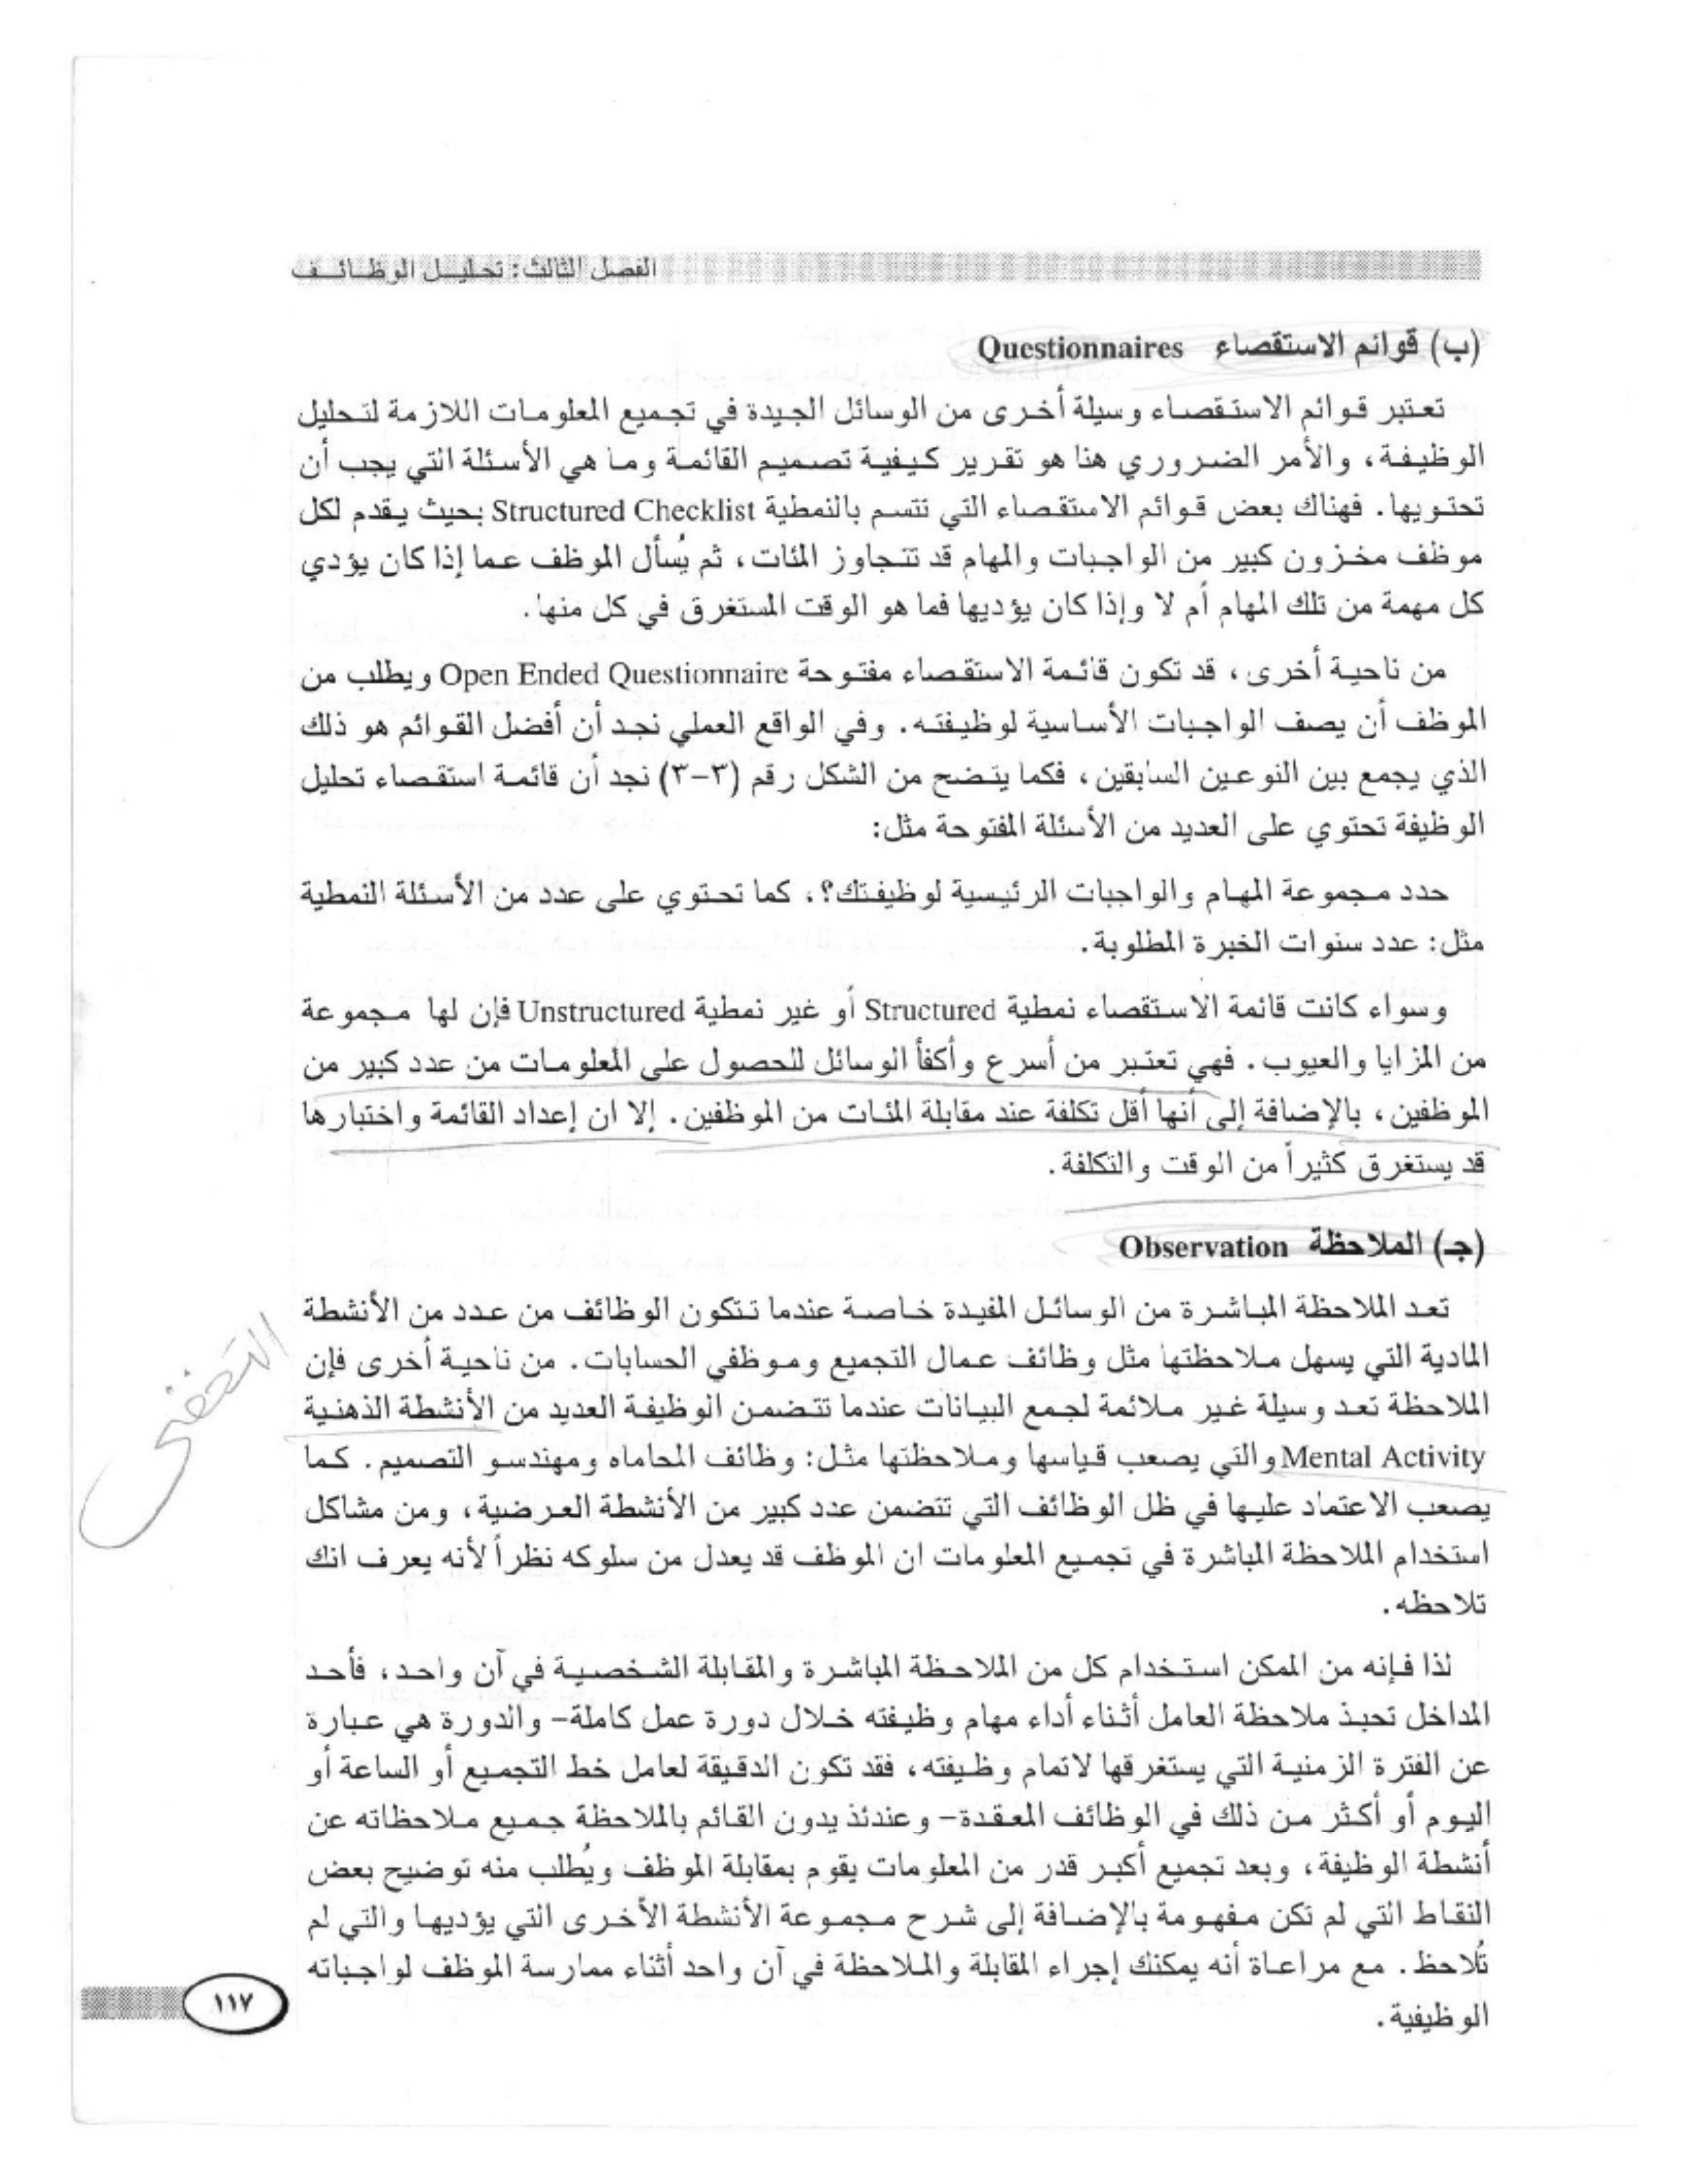 الفصل الثالث: تحليل الوظائف
(ب) قوائم الاستقصاء Questionnaires
تعتبر قوائم الاستقصاء وسيلة أخرى من الوسائل الجيدة في تجميع المعلومات اللازمة لتحليل
الوظيفة، والأمر الضروري هنا هو تقرير كيفية تصميم القائمة وما هي الأسئلة التي يجب أن
تحتويها. فهناك بعض قوائم الاستقصاء التي تتسم بالنمطية Structured Checklist بحيث يقدم لكل
موظف مخزون كبير من الواجبات والمهام قد تتجاوز المئات، ثم يُسأل الموظف عما إذا كان يؤدي
كل مهمة من تلك المهام أم لا وإذا كان يؤديها فما هو الوقت المستغرق في كل منها.
من ناحية أخرى، قد تكون قائمة الاستقصاء مفتوحة Open Ended Questionnaire ويطلب من
الموظف أن يصف الواجبات الأساسية لوظيفته. وفي الواقع العملي نجد أن أفضل القوائم هو ذلك
الذي يجمع بين النوعين السابقين، فكما يتضح من الشكل رقم (٣-٣) نجد أن قائمة استقصاء تحليل
الوظيفة تحتوي على العديد من الأسئلة المفتوحة مثل:
حدد مجموعة المهام والواجبات الرئيسية لوظيفتك؟، كما تحتوي على عدد من الأسئلة النمطية
مثل: عدد سنوات الخبرة المطلوبة.
وسواء كانت قائمة الاستقصاء نمطية Structured أو غير نمطية Unstructured فإن لها مجموعة
من المزايا والعيوب. فهي تعتبر من أسرع وأكفأ الوسائل للحصول على المعلومات من عدد كبير من
الموظفين، بالإضافة إلى أنها أقل تكلفة عند مقابلة المئات من الموظفين. إلا ان إعداد القائمة واختبارها
قد يستغرق كثيراً من الوقت والتكلفة.
(جـ) الملاحظة Observation
تعد الملاحظة المباشرة من الوسائل المفيدة خاصة عندما تتكون الوظائف من عدد من الأنشطة
المادية التي يسهل ملاحظتها مثل وظائف عمال التجميع وموظفي الحسابات. من ناحية أخرى فإن
الملاحظة تعد وسيلة غير ملائمة لجمع البيانات عندما تتضمن الوظيفة العديد من الأنشطة الذهنية
Mental Activity والتي يصعب قياسها وملاحظتها مثل: وظائف المحاماه ومهندسو التصميم. كما
يصعب الاعتماد عليها في ظل الوظائف التي تتضمن عدد كبير من الأنشطة العرضية، ومن مشاكل
استخدام الملاحظة المباشرة في تجميع المعلومات ان الموظف قد يعدل من سلوكه نظراً لأنه يعرف انك
تلاحظه.
لذا فإنه من الممكن استخدام كل من الملاحظة المباشرة والمقابلة الشخصية في آن واحد، فأحد
المداخل تحبذ ملاحظة العامل أثناء أداء مهام وظيفته خلال دورة عمل كاملة- والدورة هي عبارة
عن الفترة الزمنية التي يستغرقها لاتمام وظيفته، فقد تكون الدقيقة لعامل خط التجميع أو الساعة أو
اليوم أو أكثر من ذلك في الوظائف المعقدة- وعندئذ يدون القائم بالملاحظة جميع ملاحظاته عن
أنشطة الوظيفة، وبعد تجميع أكبر قدر من المعلومات يقوم بمقابلة الموظف ويُطلب منه توضيح بعض
النقاط التي لم تكن مفهومة بالإضافة إلى شرح مجموعة الأنشطة الأخرى التي يؤديها والتي لم
تُلاحظ. مع مراعاة أنه يمكنك إجراء المقابلة والملاحظة في آن واحد أثناء ممارسة الموظف لواجباته
الوظيفية.
١١٧